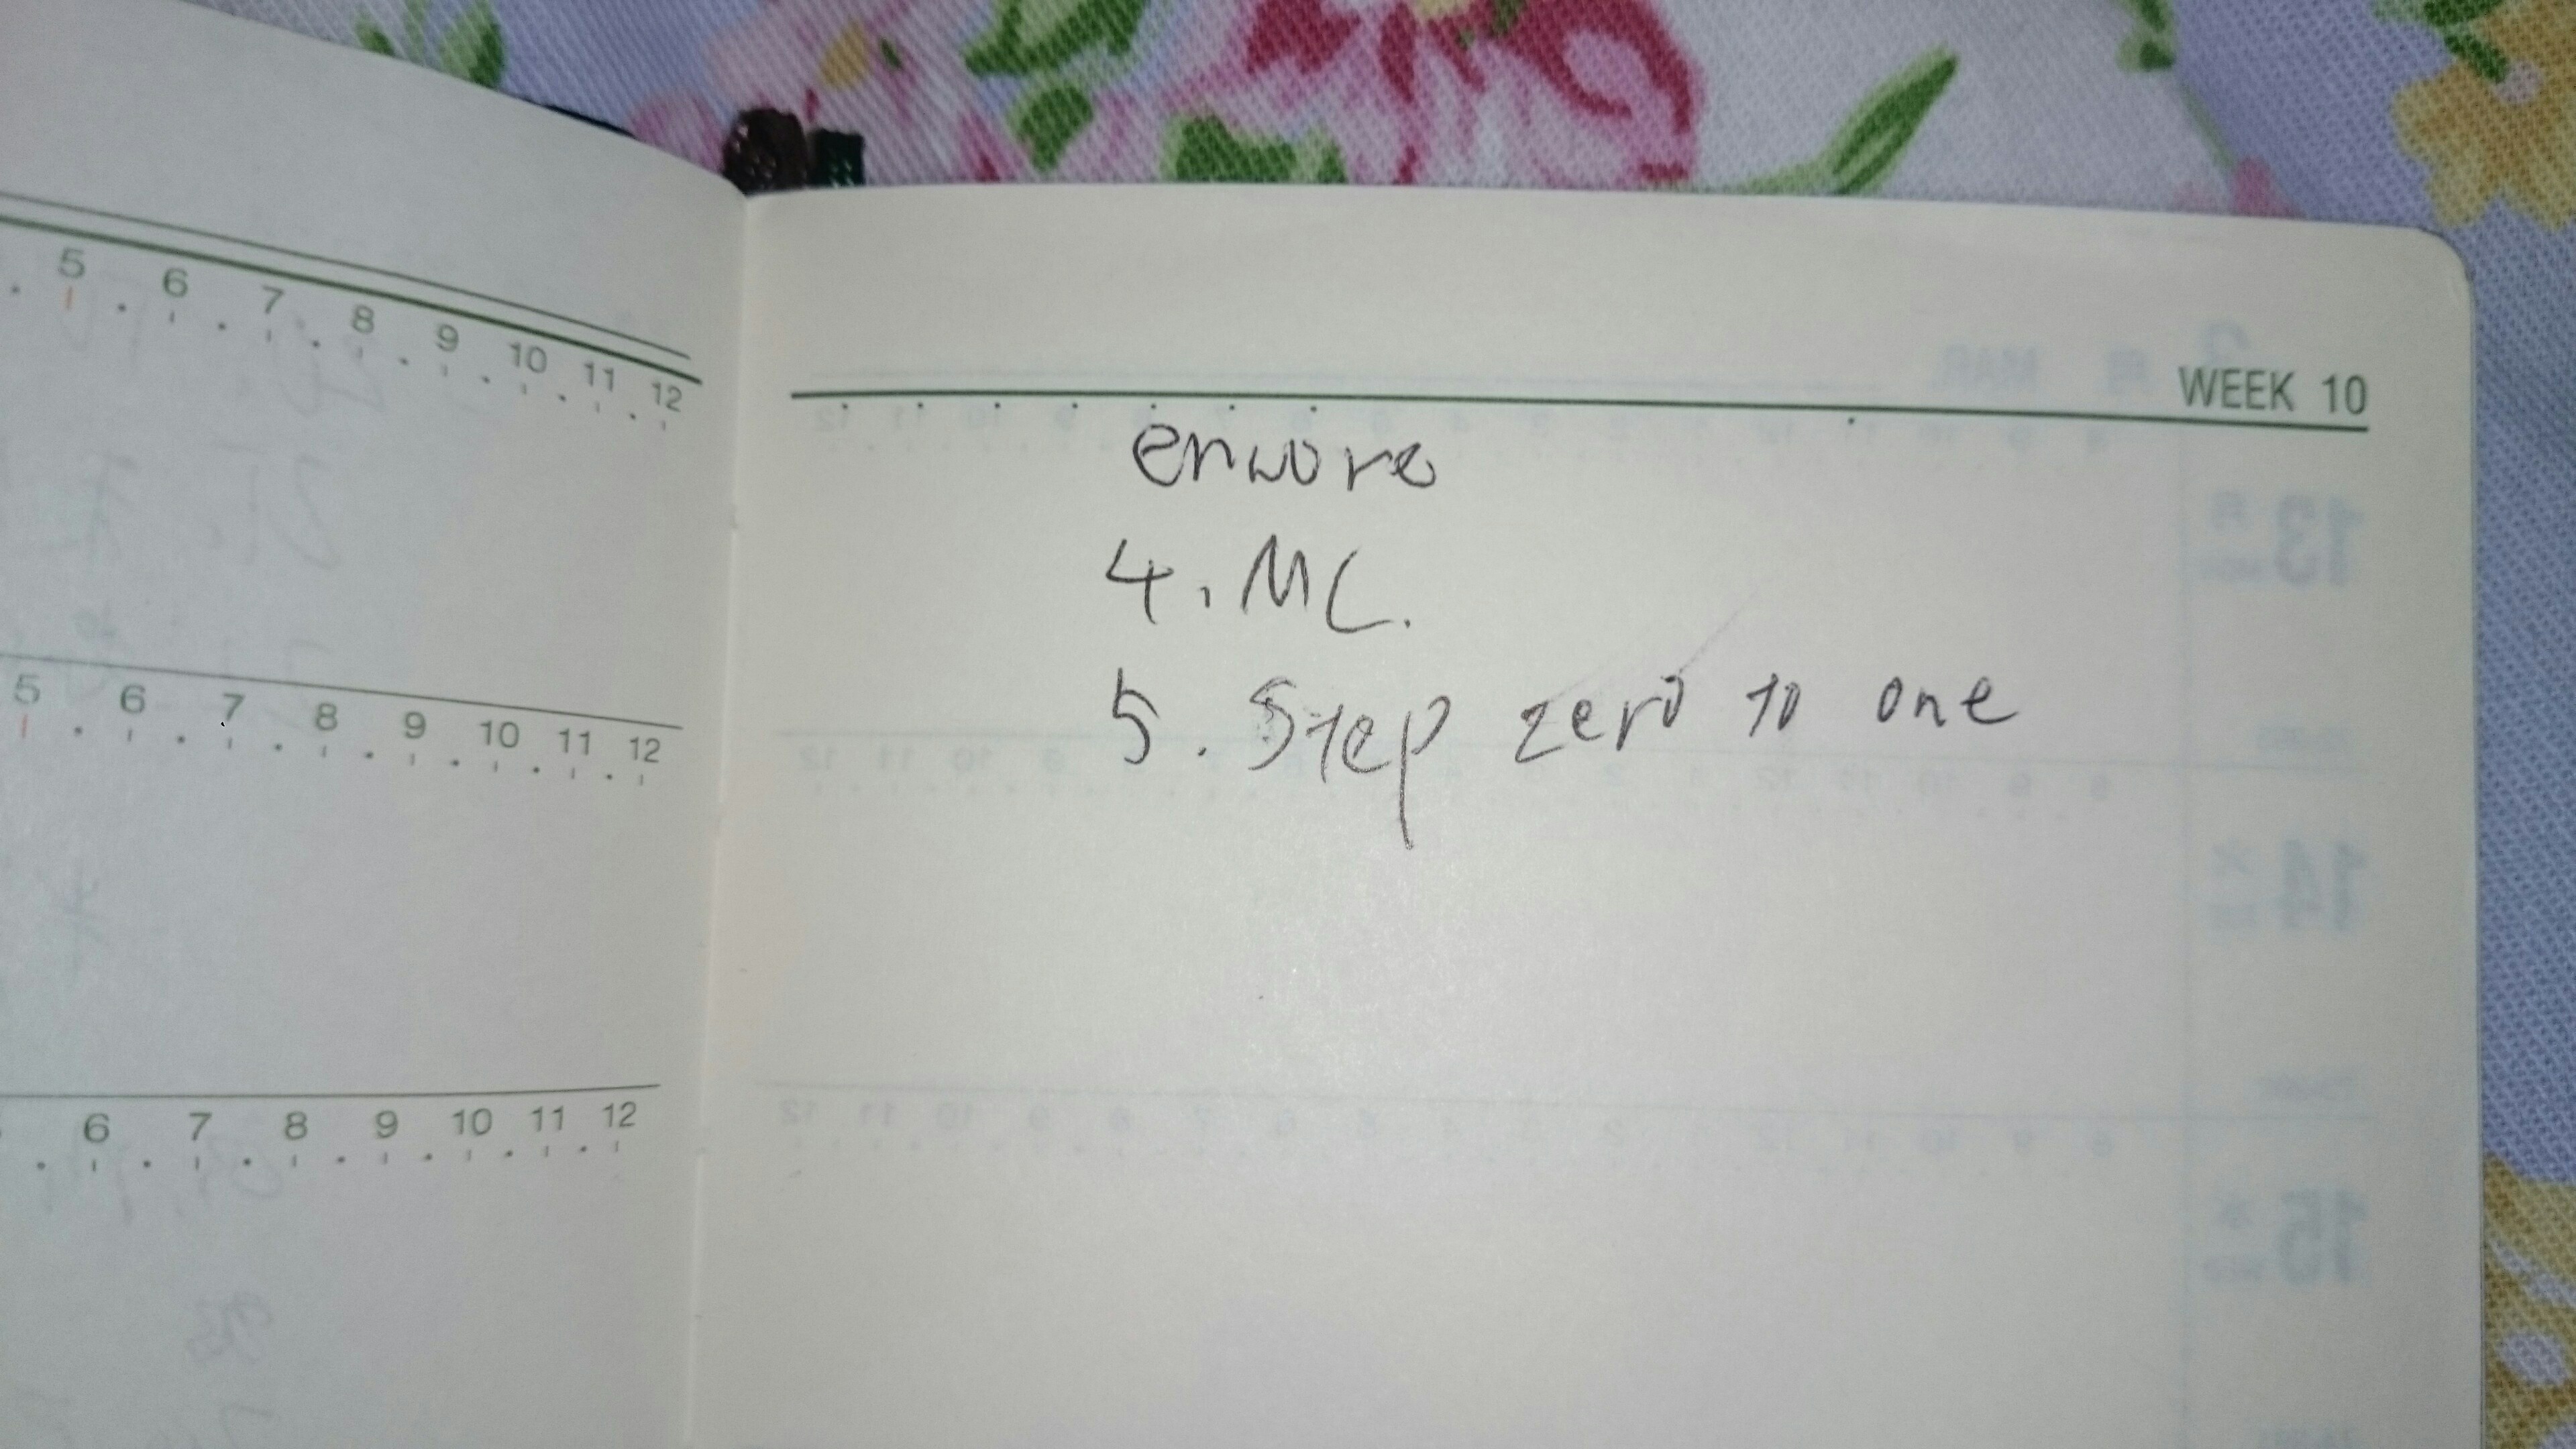 5 6 7 8 9 10 11 12
WEEK 10
encore
4. MC.
5. Step zero to one
5 6 7 8 9 10 11 12
6 7 8 9 10 11 12